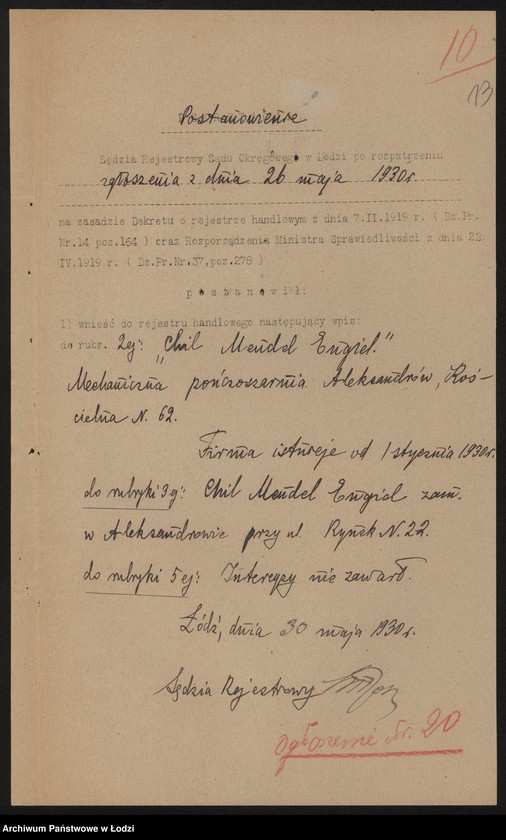 10
13
Postanowienie
Sędzia Rejestrowy Sądu Okręgowego w Łodzi po rozpatrzeniu
zgłoszenia z dnia 26 maja 1930r.
na zasadzie Dekretu o rejestrze handlowym z dnia 7.II.1919 r. ( Dz.Pr.
Nr.14 poz.164 ) oraz Rozporządzenia Ministra Sprawiedliwości z dnia 22
IV.1919 r. ( Dz.Pr.Nr.37,poz.278 )
p o s t a n o w i ł :
1) wnieść do rejestru handlowego następujący wpis:
do rubr. 2ej: "Chil Mendel Engiel."
Mechaniczna pończoszarnia. Aleksandrów, Koś-
cielna N. 62.
Firma istnieje od 1 stycznia 1930r.
do rubryki 3ej: Chil Mendel Engiel zam.
w Aleksandrowie przy ul. Rynek N. 22.
do rubryki 5ej: Intercyzy nie zawarł.
Łódź, dnia 30 maja 1930r.
Sędzia Rejestrowy
ogłoszenie Nr. 20
Archiwum Państwowe w Łodzi